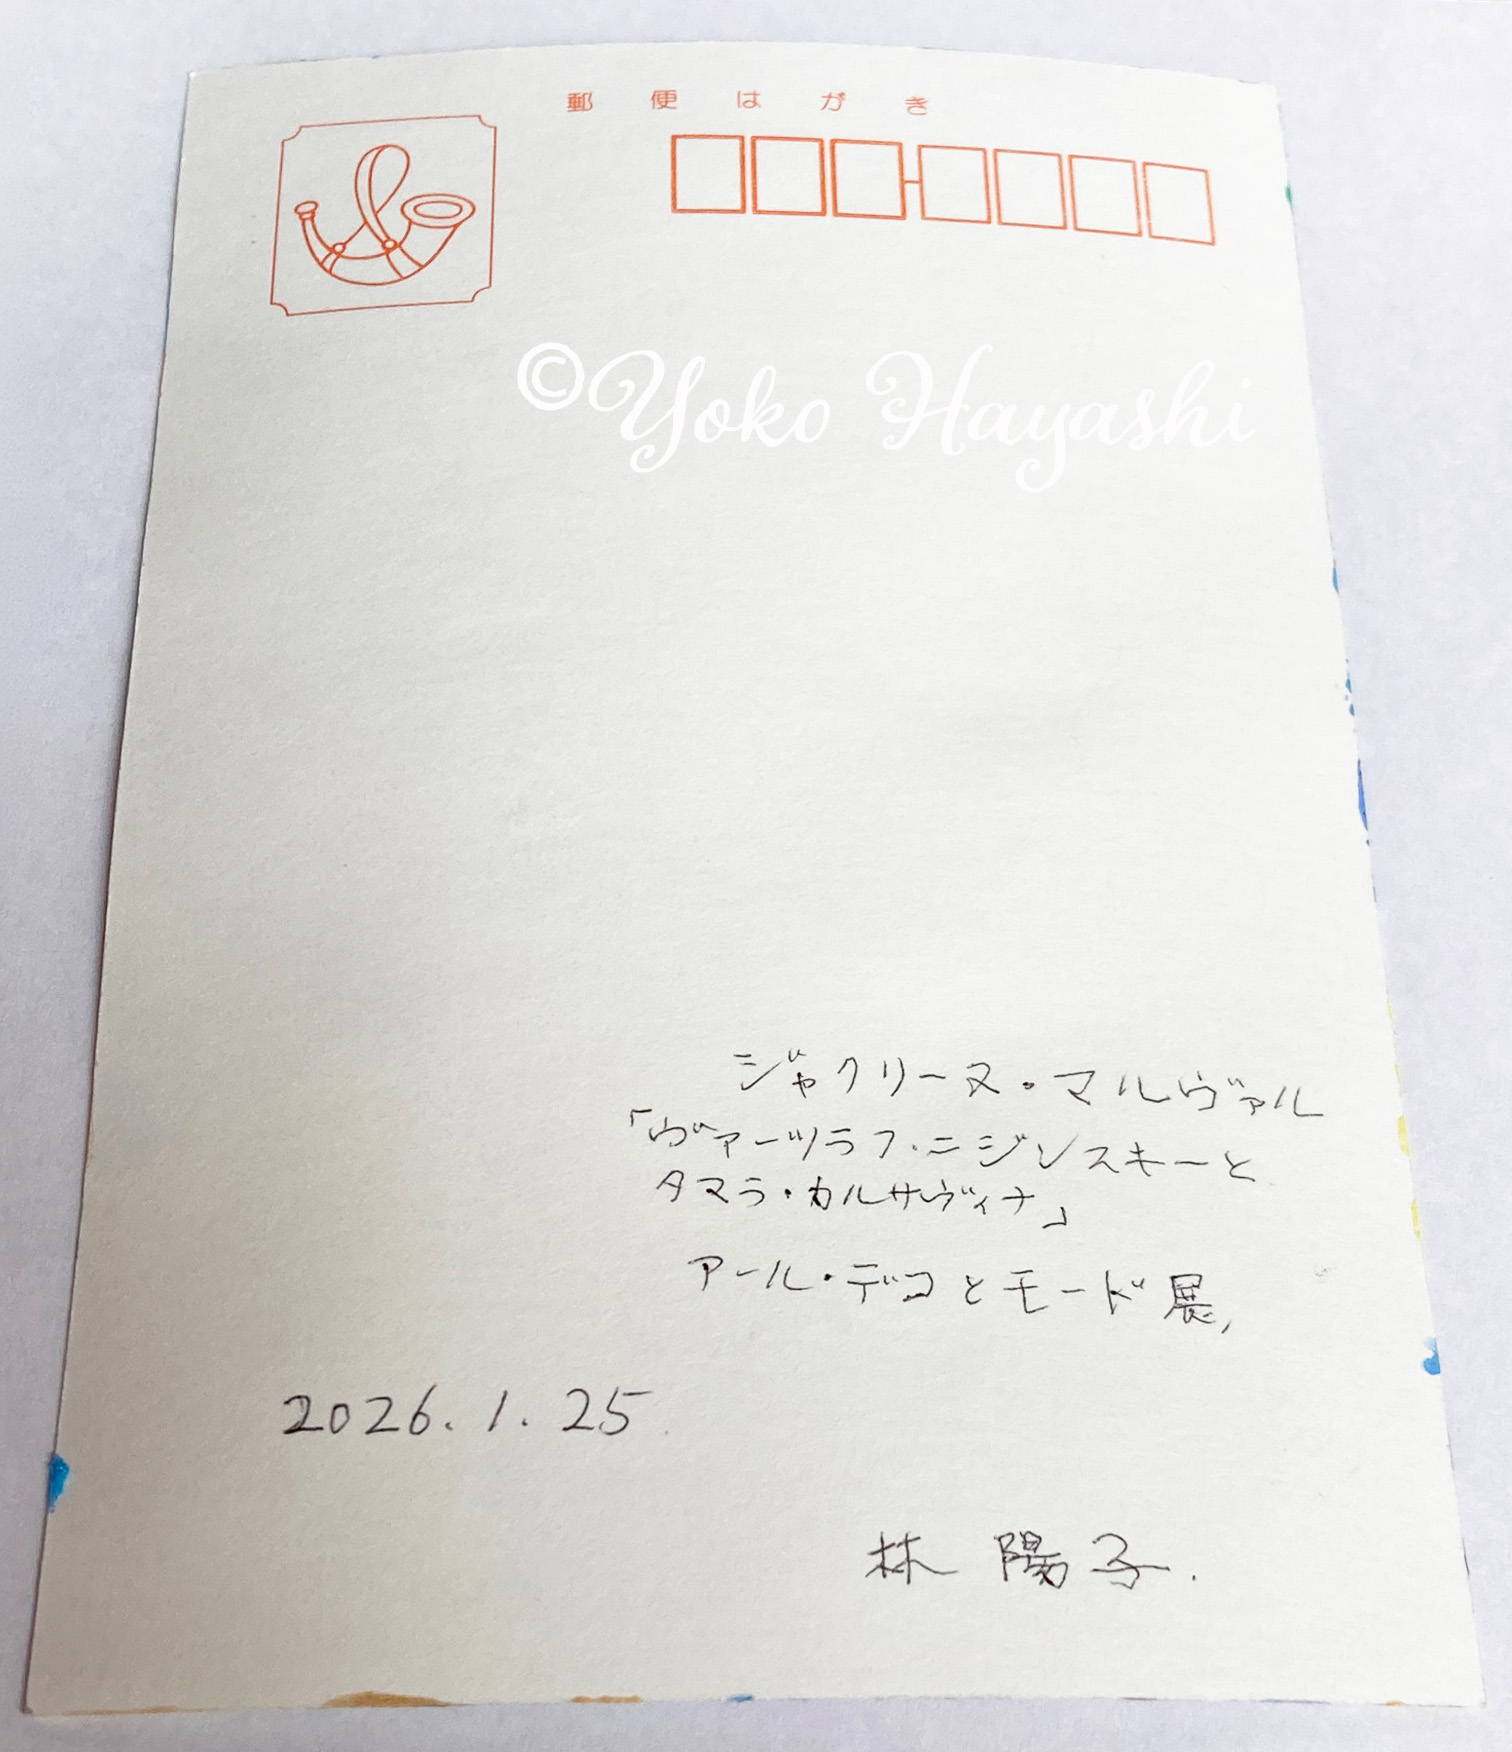 郵便はがき
©Yoko Hayashi
ジャクリーヌ・マルヴァル
「ヴァーツラフ・ニジンスキーと
タマラ・カルサヴィナ」
アール・デコとモード展,
2026.1.25.
林 陽子.